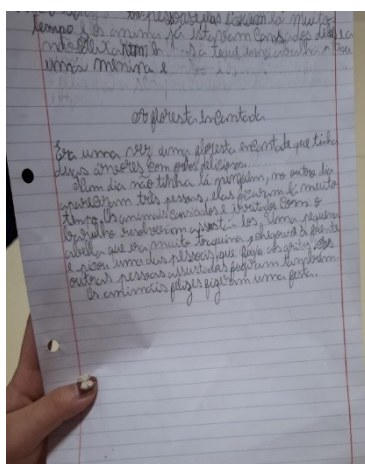 tempo e os animais já estavam cansados dela
uma menina e
A floresta encantada
Era uma vez uma floresta encantada que tinha
duas árvores com odor delicioso.
Num dia não tinha lá ninguém, no outro dia
apareceram três pessoas, elas ficaram lá muito
tempo. Os animais cansados e irritados com o
barulho resolveram assustá-los. Uma pequena
abelha que era muito traquina, chegou à frente
e picou uma das pessoas, que fugiu aos gritos, as
outras pessoas assustadas fugiram também.
Os animais felizes fizeram uma festa.